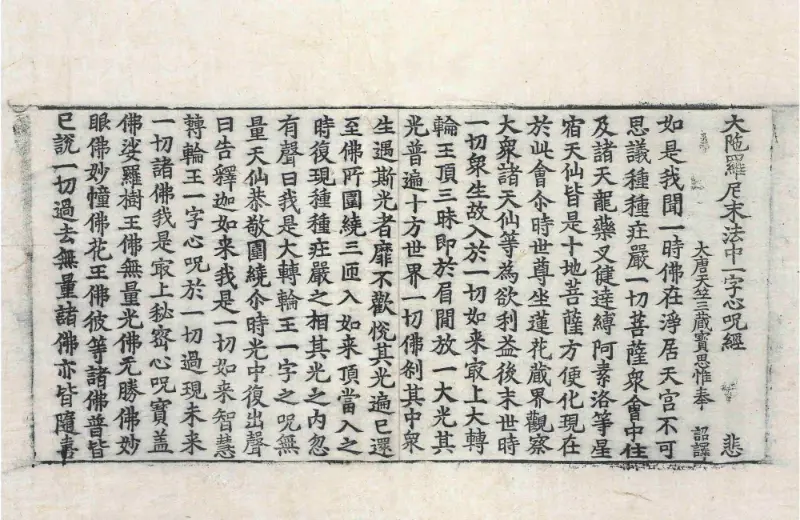 大陁羅尼末法中一字心咒經 悲
大唐天竺三藏寶思惟奉 詔譯
如是我聞一時佛在淨居天宮不可
思議種種庄嚴一切菩薩衆會中住
及諸天龍藥叉健達縛阿素洛等星
宿天仙皆是十地菩薩方便化現在
於此會尒時世尊坐蓮花藏界觀察
大衆諸天仙等為欲利益後末世時
一切衆生故入於一切如来㝡上大轉
輪王頂三昧即於眉間放一大光其
光普遍十方世界一切佛刹其中衆
生遇斯光者靡不歡悅其光遍已還
至佛所圍繞三匝入如来頂當入之
時復現種種庄嚴之相其光之内忽
有聲曰我是大轉輪王一字之咒無
量天仙恭敬圍繞尒時光中復出聲
曰告釋迦如来我是一切如来智慧
轉輪王一字心咒於一切過現未来
一切諸佛我是㝡上秘密心咒寶盖
佛娑羅樹王佛無量光佛无勝佛妙
眼佛妙幢佛花王佛彼等諸佛普皆
已說一切過去無量諸佛亦皆隨喜